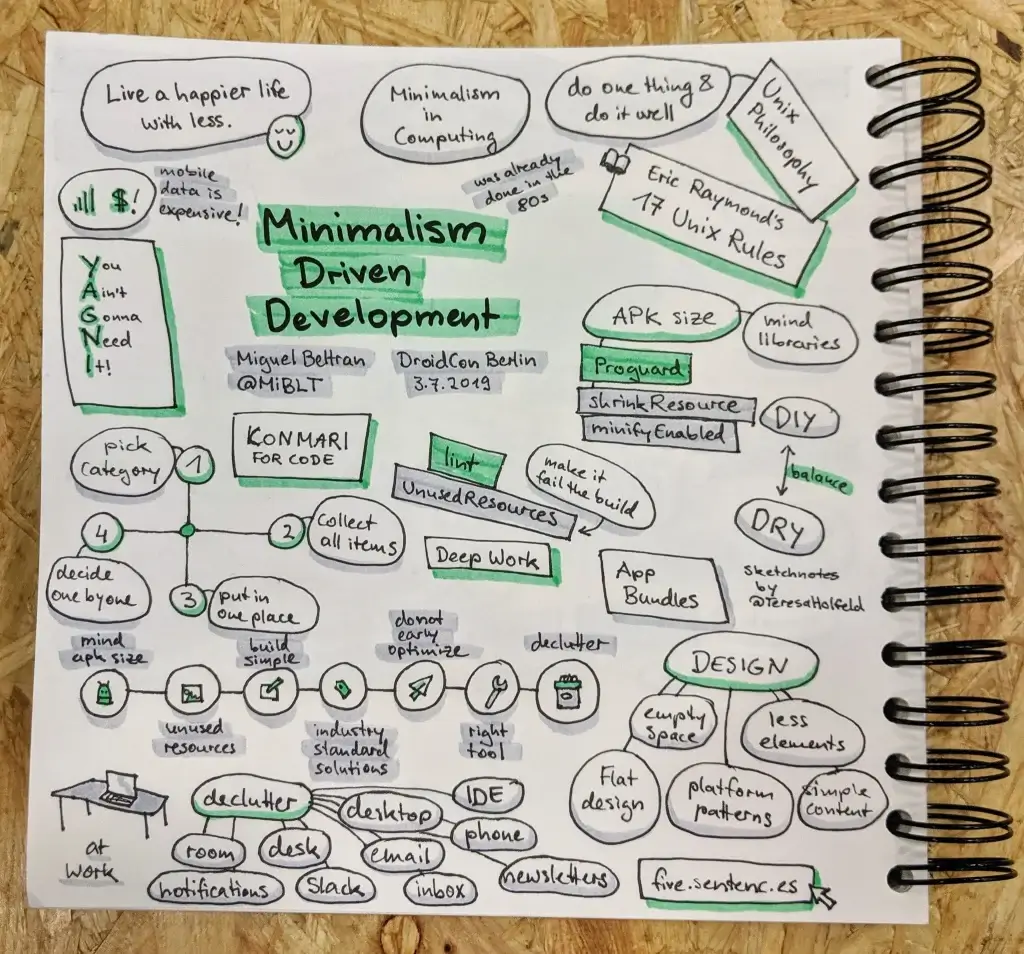 Live a happier life
with less.
Minimalism
in
Computing
do one thing &
do it well
Unix
Philosophy
$!
mobile
data is
expensive!
was already
done in the
80s
Eric Raymond's
17 Unix Rules
Minimalism
Driven
Development
Miguel Beltran
@MiBLT
DroidCon Berlin
3.7.2019
You
Ain't
Gonna
Need
It!
APK size
mind
libraries
Proguard
shrinkResource
minifyEnabled
DIY
balance
DRY
KONMARI
FOR CODE
pick
category
1
2
collect
all items
3
put in
one place
4
decide
one by one
lint
UnusedResources
make it
fail the build
Deep Work
App
Bundles
Sketchnotes
by
@TeresaHolfeld
mind
apk size
unused
resources
build
simple
industry
standard
solutions
do not
early
optimize
right
tool
declutter
DESIGN
empty
space
less
elements
Flat
design
platform
patterns
simple
content
at
work
declutter
desktop
IDE
phone
room
desk
email
newsletters
notifications
Slack
inbox
five.sentenc.es